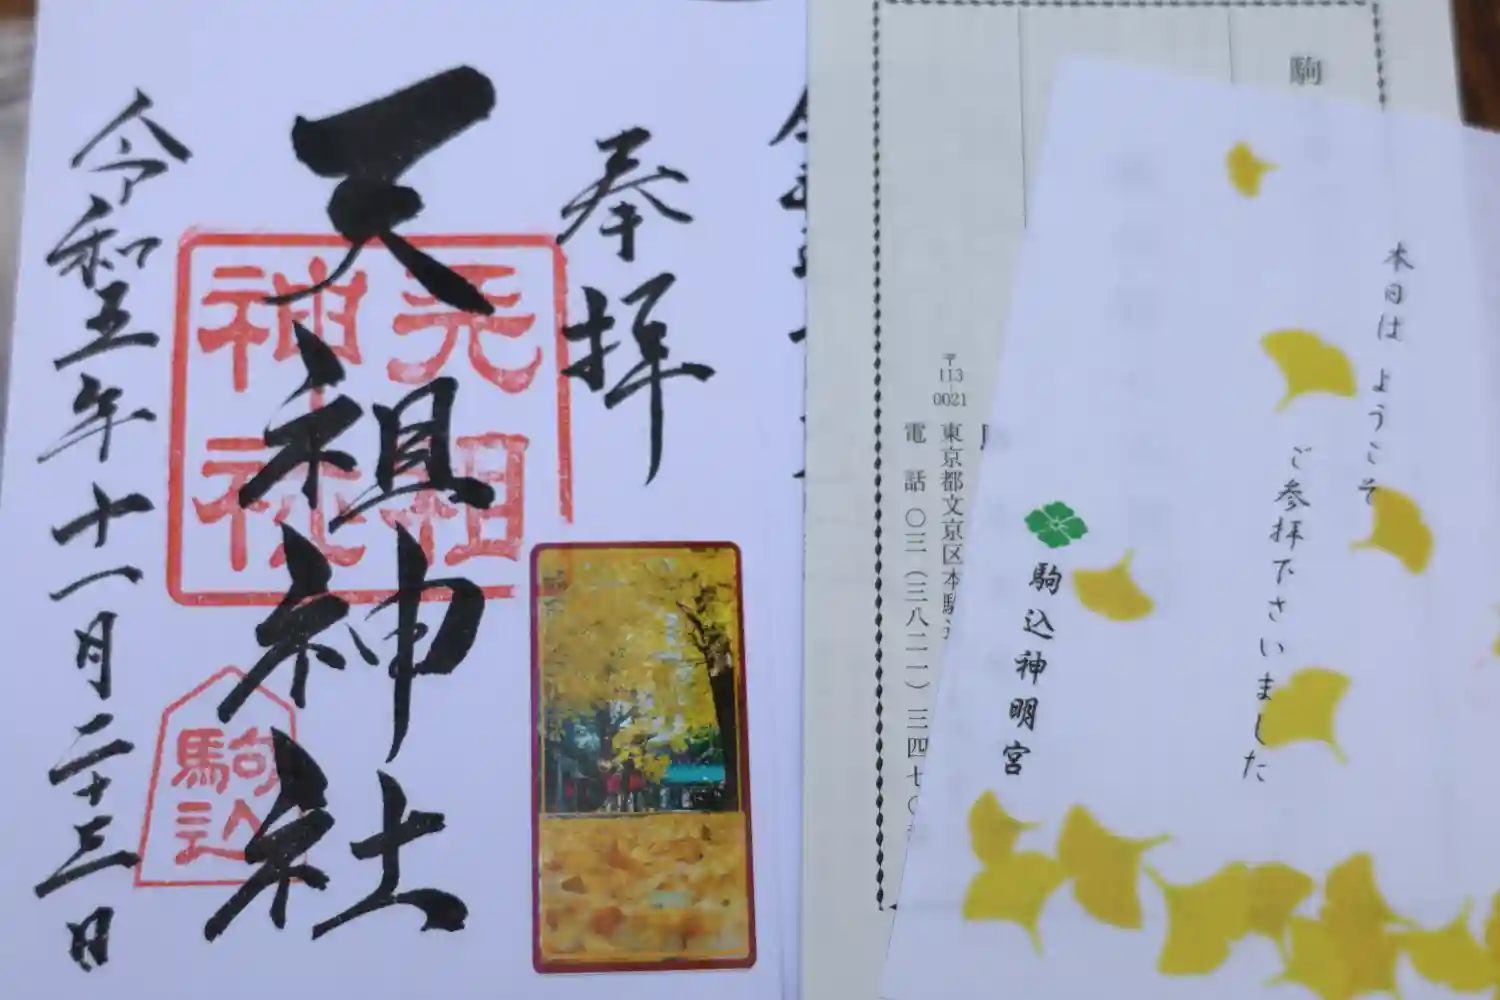 奉拝
天祖神社
令和五年十一月二十三日
天祖
神社
駒込
駒
〒113-0021
東京都文京区本駒
電話〇三(三八二一)三四七〇
本日は ようこそ
ご参拝下さいました
駒込神明宮